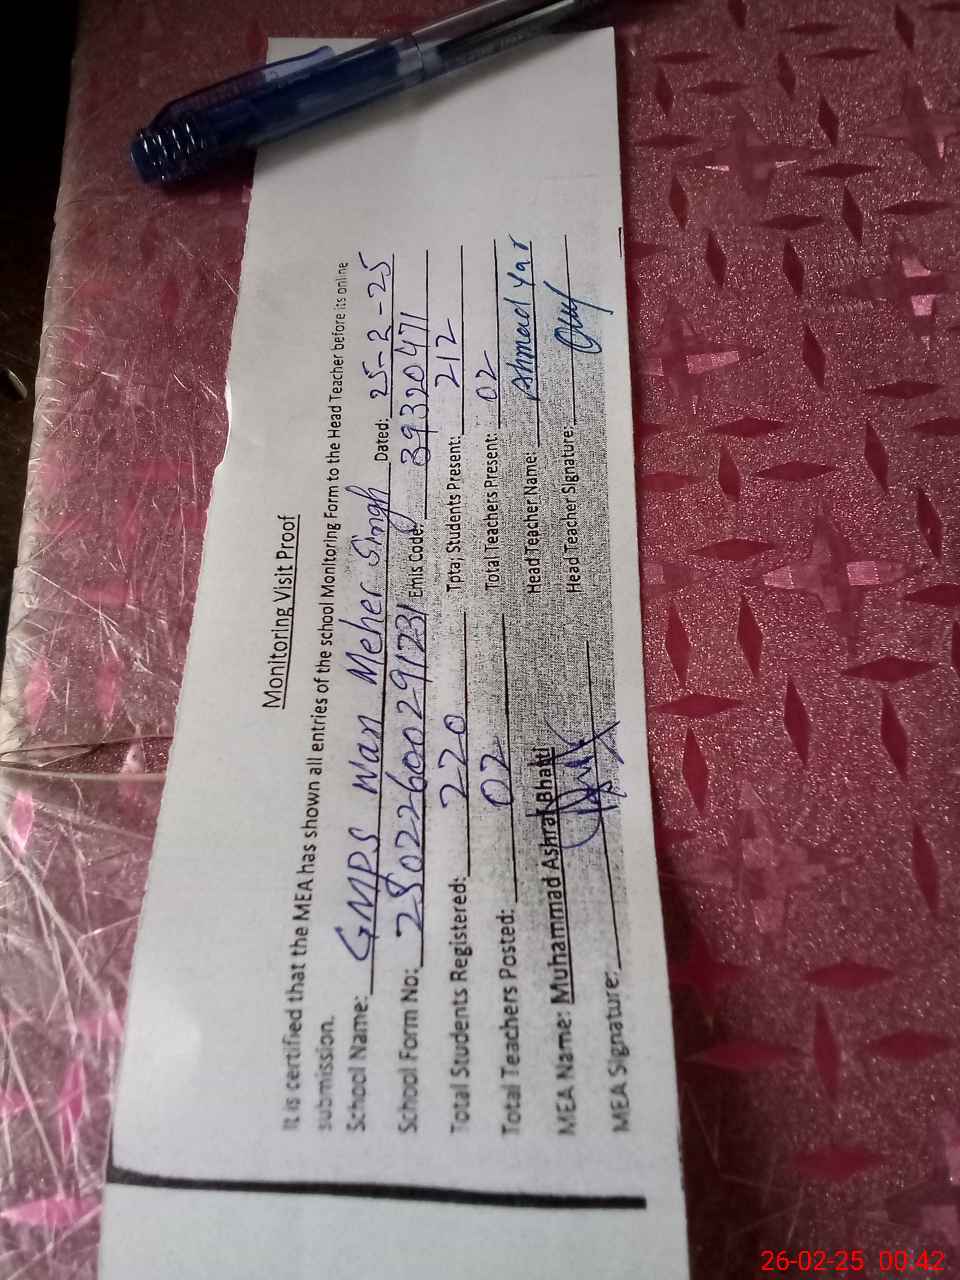 Monitoring Visit Prof
It is certified that the MEA has shown all entries of the school Monitoring Form to the Head Teacher before its online
submission.
School Name: GMPS Wan Meher Singh Dated: 25-2-25
School Form No: 25022600291731 Emis Code: 39320471
Total Students Registered: 220 Tota; Students Present: 212
Total Teachers Posted: 02 Total Teachers Present: 02
MEA Name: Muhammad Ashraf Bhatti Head Teacher Name: Ahmad Yar
MEA Signature: Head Teacher Signature:
26-02-25 00:42